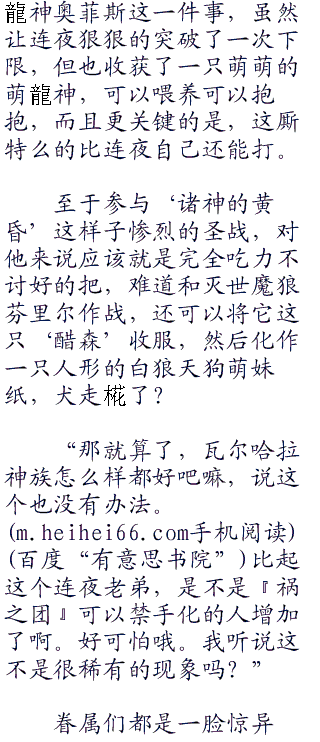 龍神奥菲斯这一件事，虽然
让连夜狠狠的突破了一次下
限，但也收获了一只萌萌的
萌龍神，可以喂养可以抱
抱，而且更关键的是，这厮
特么的比连夜自己还能打。
至于参与‘诸神的黄
昏’这样子惨烈的圣战，对
他来说应该就是完全吃力不
讨好的把，难道和灭世魔狼
芬里尔作战，还可以将它这
只‘醋森’收服，然后化作
一只人形的白狼天狗萌妹
纸，犬走椛了？
“那就算了，瓦尔哈拉
神族怎么样都好吧嘛，说这
个也没有办法。
(m.heihei66.com手机阅读)
(百度“有意思书院”)比起
这个连夜老弟，是不是『祸
之团』可以禁手化的人增加
了啊。好可怕哦。我听说这
不是很稀有的现象吗？”
眷属们都是一脸惊异